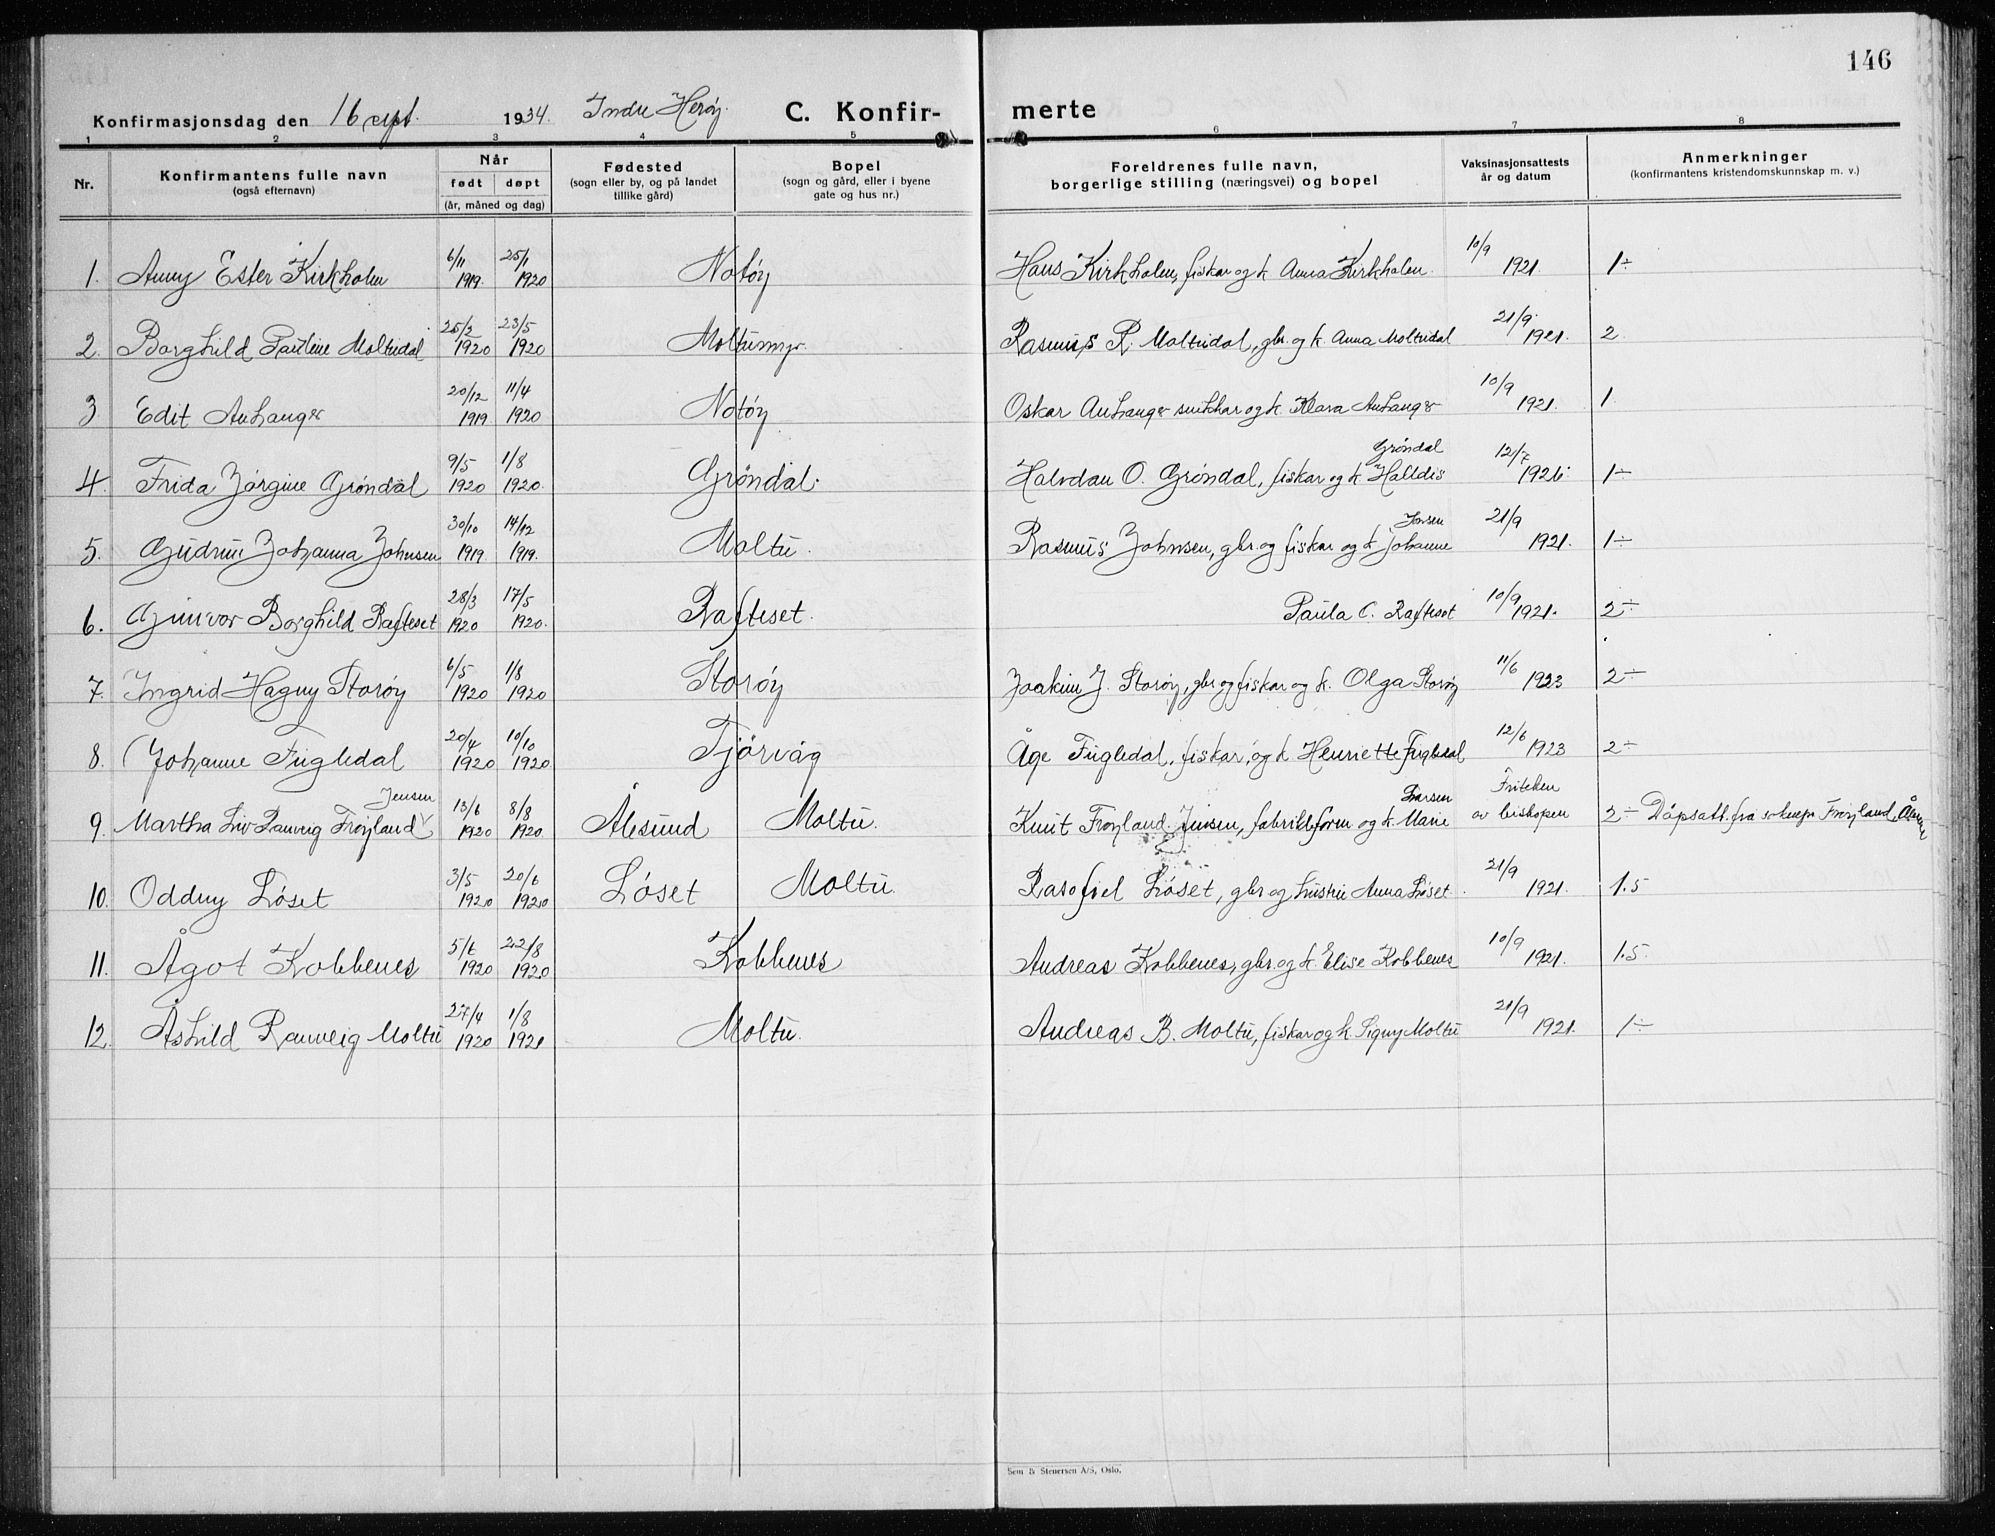 146
Konfirmasjonsdag den 16 sept. 1934. Indre Herøy. C. Konfirmerte
1 2 3 4 5 6 7 8
Nr. Konfirmantens fulle navn (også efternavn) Når født døpt (år, måned og dag) Fødested (sogn eller by, og på landet tillike gård) Bopel (sogn og gård, eller i byene gate og hus nr.) Foreldrenes fulle navn, borgerlige stilling (næringsvei) og bopel Vaksinasjonsattests år og datum Anmerkninger (konfirmantens kristendomskunnskap m. v.)
1. Anny Ester Kirkholm 6/11 1919. 25/1 1920 Notøy Hans Kirkholm, fiskar og k. Anna Kirkholm. 10/9 1921. 1÷
2. Borghild Pauline Moltudal 25/2 1920 23/5 1920 Moltumyr Rasmus R. Moltudal, gbr. og k. Anna Moltudal 21/9 1921. 2.
3 Edit Auhauger 20/12 1919 11/4 1920 Notøy Oskar Auhauger snikkar og k. Klara Auhauger 10/9 1921. 1.
4. Frida Jørgine Grøndal 9/5 1920 1/8 1920. Grøndal. Halvdan O. Grøndal, fiskar og k Halldis Grøndal 12/7 1926. 1÷
5. Gudrun Johanna Johnsen 30/10 1919 14/12 1919. Moltu. Rasmus Johnsen, gbr. og fiskar og k Johanne Jonsen 21/9 1921. 1÷
6. Gunvor Borghild Rafteset 28/3 1920 17/5 1920. Rafteset. Paula C. Rafteset 10/9 1921. 2÷
7. Ingrid Hagny Storøy 6/5 1920 1/8 1920 Storøy Joakim J. Storøy, gbr og fiskar og k. Olga Storøy 11/6 1923 2÷
8. Johanne Fugledal 20/4 1920 10/10 1920 Tjørvåg Åge Fugledal, fiskar, og k Henriette Fugledal 12/6 1923 2÷
9. Martha Liv Rauveig Frøyland Jensen 13/6 1920 8/8 1920. Ålesund Moltu. Knut Frøyland Jensen, fabrikkform og k. Marie Larsen Friteken av biskopen 2÷ Dåpsatt. fra soknepr Frøyland,
10. Oddny Løset 3/5 1920 20/6 1920 Løset Moltu Løset, gbr og hustru Anna Løset. 21/9 1921. 1.5
11. Ågot Kobbenes 5/6 1920 22/8 1920 Kobbenes Andreas Kobbenes, gbr. og k. Elise Kobbenes 10/9 1921. 1.5.
12. Åshild Rauveig Moltu 27/4 1920 1/8 1921 Moltu. Andreas B. Moltu, fiskar og k Signy Moltu 21/9 1921. 1÷
Sem & Stenersen A/S, Oslo.